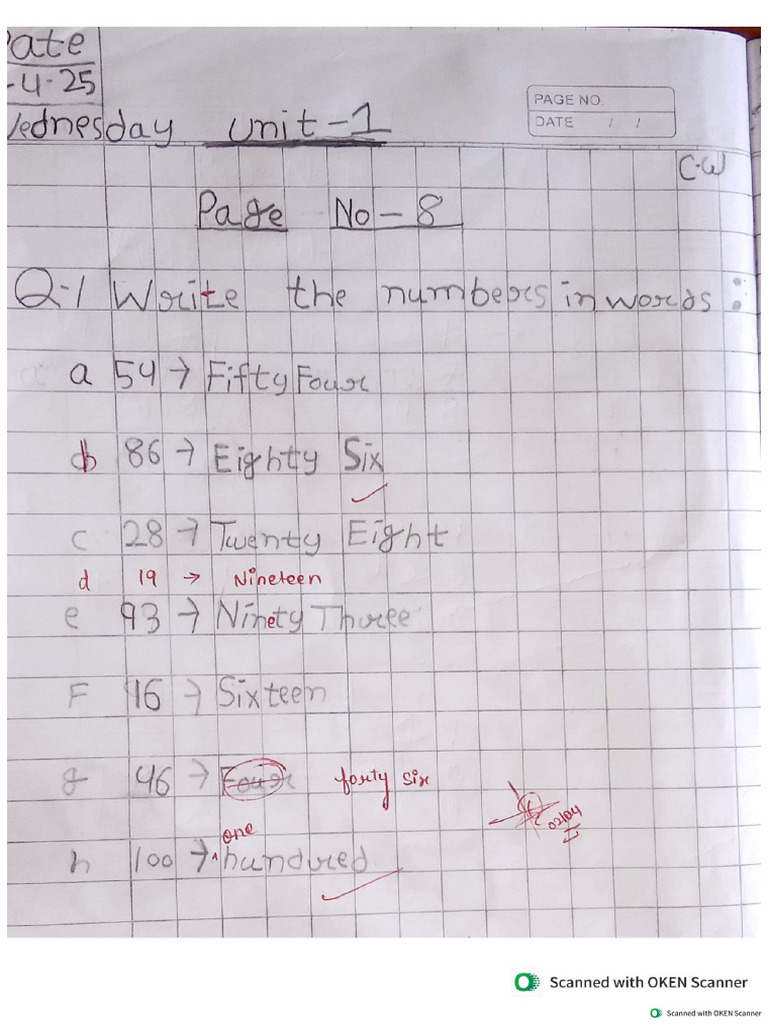 Date
-4-25
Wednesday Unit-1
PAGE NO.
DATE / /
C.W
Page No-8
Q.1 Write the numbers in words:
a 54 → Fifty Four
b 86 → Eighty Six
c 28 → Twenty Eight
d 19 → Nineteen
e 93 → Ninety Three
F 16 → Sixteen
g 46 → Four forty six
02/04
one
h 100 → hundred
Scanned with OKEN Scanner
Scanned with OKEN Scanner